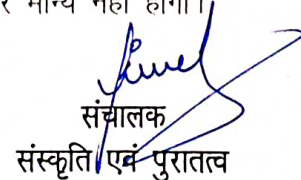 मान्य नहीं होगा।
संचालक
संस्कृति एवं पुरातत्व